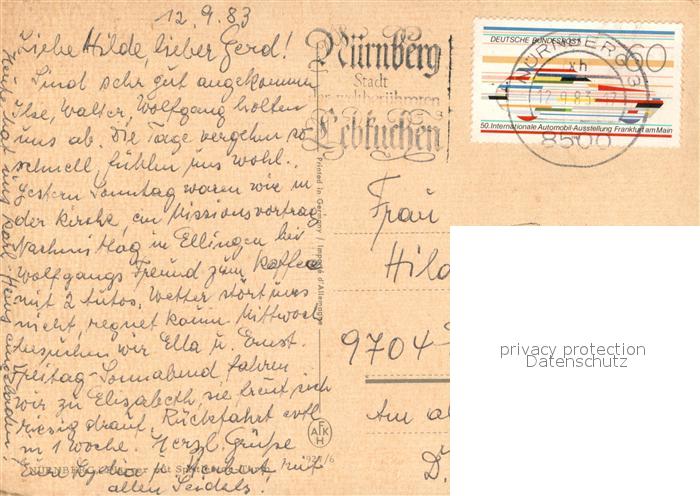 12.9.83
Liebe Hilde, lieber Gerd!
Sind sehr gut angekommen
Ilse, Walter, Wolfgang holten
uns ab. Die Tage vergehn so
schnell, fühlen uns wohl.
Gestern Sonntag waren wir in
der Kirche, ein Missionsvortrag
Nachmittag in Ellingen bei
Wolfgangs Freund zum Kaffee
mit 2 Autos. Wetter stört uns
nicht, regnet kaum. Mittwoch
besuchen wir Ella u. Ernst.
Freitag-Sonnabend fahren
wir zu Elisabeth, sie freut sich
riesig drauf. Rückfahrt evtl.
in 1 Woche. Herzl. Grüße
Eure u. Herbert mit
allen Seidels.
Heute hat uns Karl-Hans eingeladen!
Nürnberg
Stadt
der weltberühmten
Lebkuchen
DEUTSCHE BUNDESPOST
60
50. Internationale Automobil-Ausstellung Frankfurt am Main
NÜRNBERG 3
xh
12.9.83
8500
Printed in Germany / Imprimé d'Allemagne
Frau
Hild
9704
Am al
D
AFKH
924/6
NÜRNBERG
privacy protection
Datenschutz